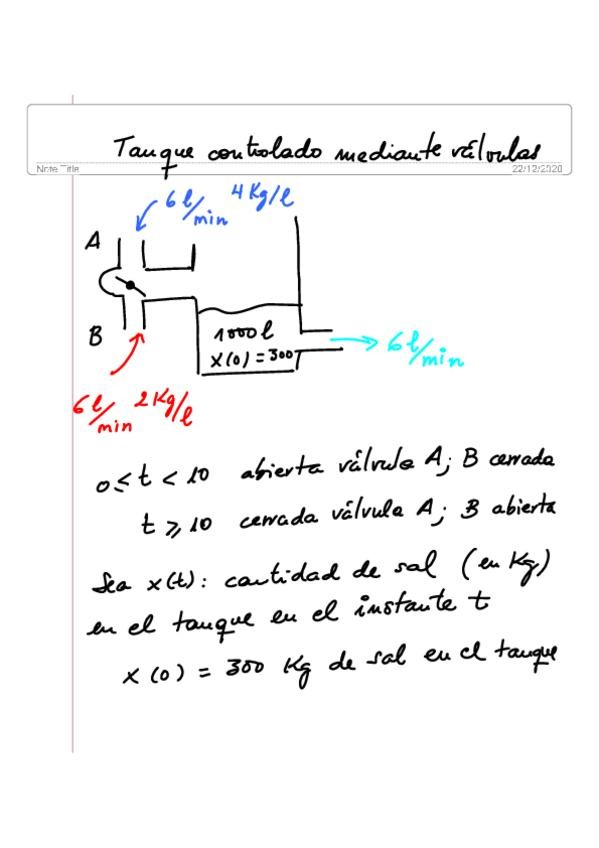 Tanque controlado mediante válvulas
Note Title
22/12/2020
6 l/min 4 Kg/l
A
B
1000 l
x(0) = 300
6 l/min
6 l/min 2 Kg/l
0 ≤ t < 10 abierta válvula A; B cerrada
t ≥ 10 cerrada válvula A; B abierta
Sea x(t): cantidad de sal (en Kg)
en el tanque en el instante t
x(0) = 300 Kg de sal en el tanque